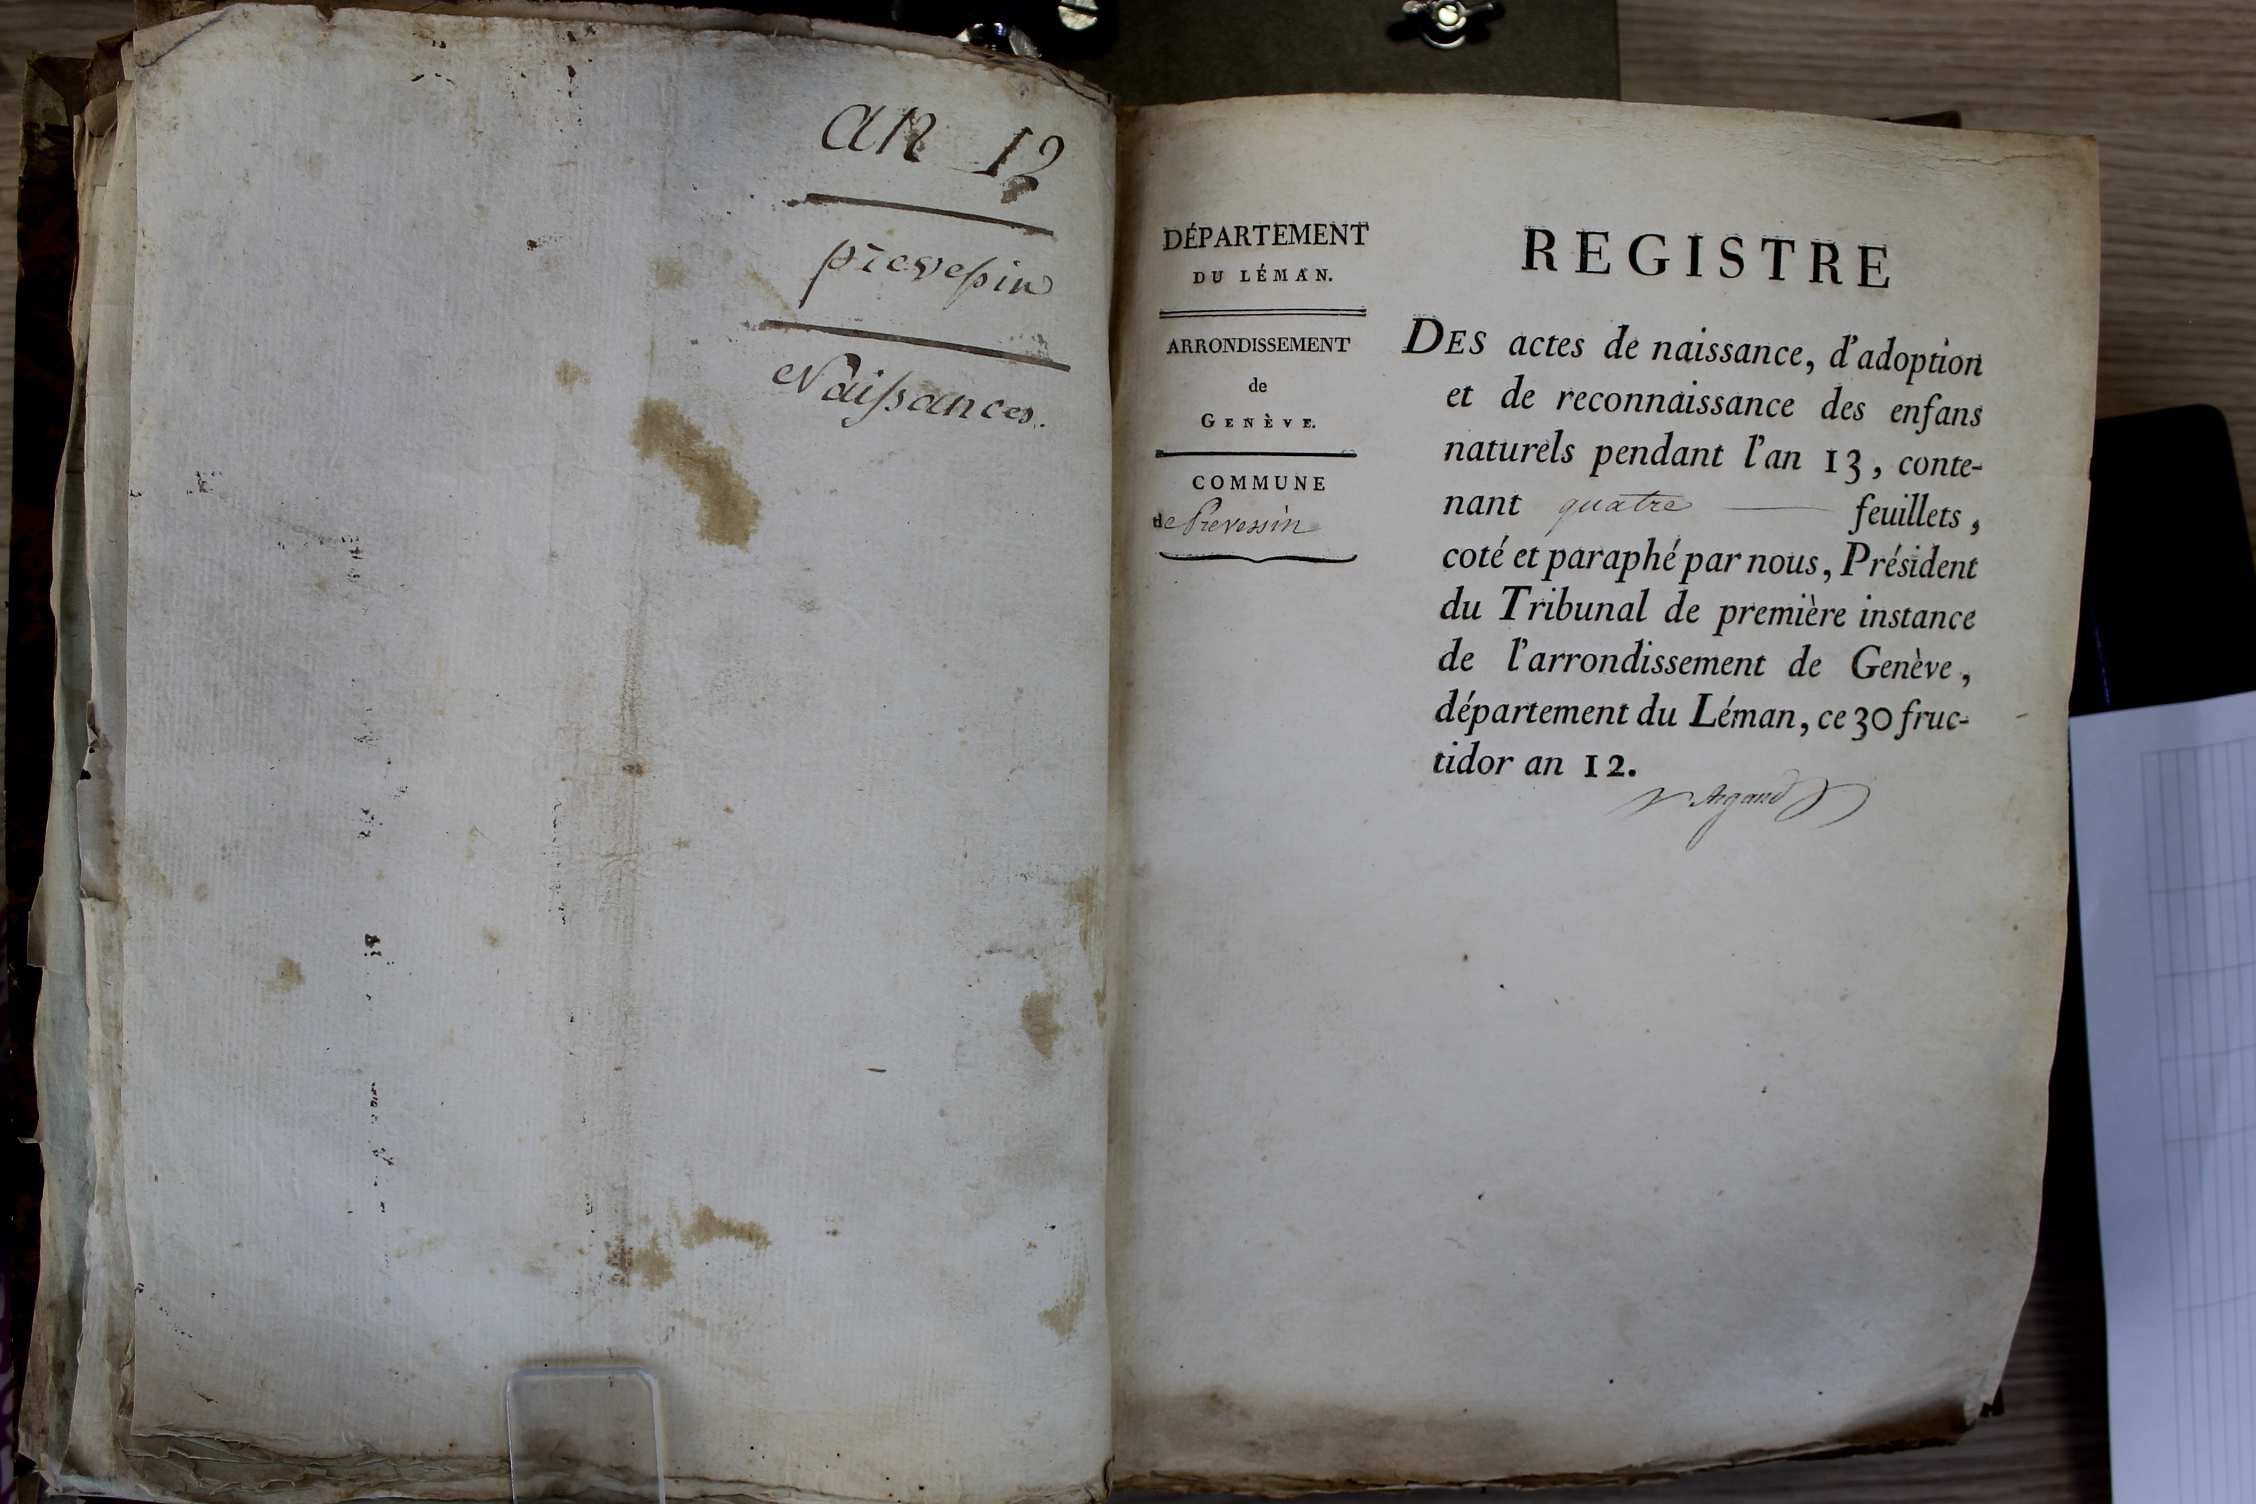 an 12
prevessin
Naissances.
DÉPARTEMENT
DU LÉMAN.
ARRONDISSEMENT
de
GENÈVE.
COMMUNE
de Prevessin
REGISTRE
DES actes de naissance, d'adoption
et de reconnaissance des enfans
naturels pendant l'an 13, conte-
nant quatre — feuillets,
coté et paraphé par nous, Président
du Tribunal de première instance
de l'arrondissement de Genève,
département du Léman, ce 30 fruc-
tidor an 12.
Argand